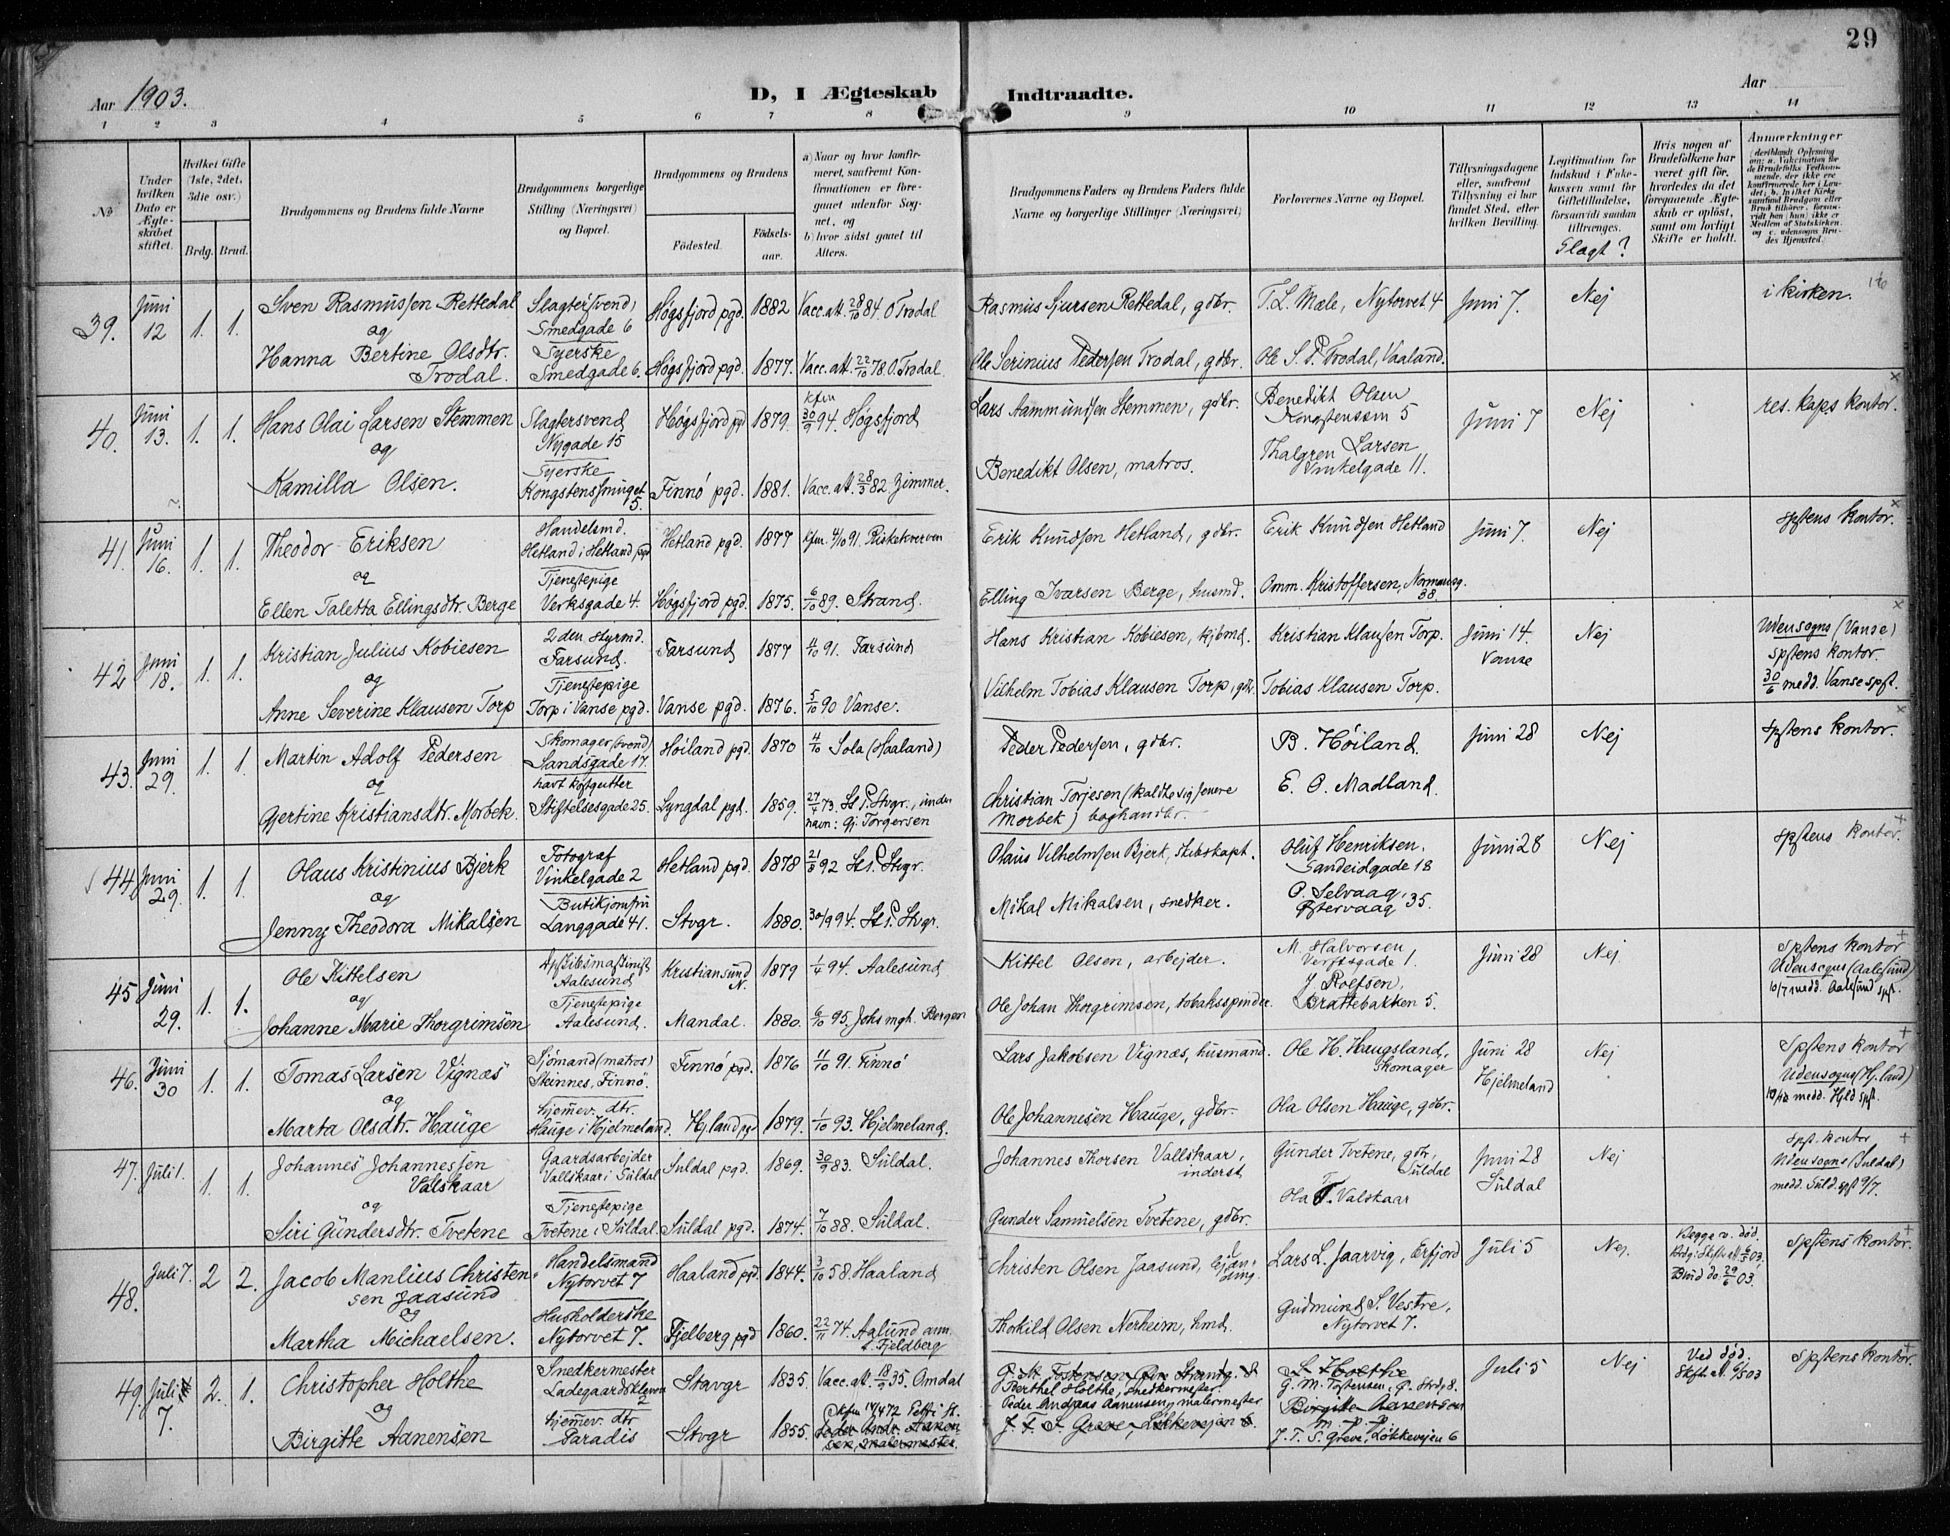 29
Aar 1903.
D, I Ægteskab Indtraadte.
Aar
1 2 3 4 5 6 7 8 9 10 11 12 13 14
No
Under hvilken Dato er Ægteskabet stiftet.
Hvilket Gifte (1ste, 2det, 3die osv.)
Brdg. Brud.
Brudgommens og Brudens fulde Navne
Brudgommens borgerlige Stilling (Næringsvei) og Bopæl.
Brudgommens og Brudens
Födested. Födselsaar.
a) Naar og hvor konfirmeret, saafremt Konfirmationen er foregaaet udenfor Sognet, og
b) hvor sidst gaaet til Alters.
Brudgommens Faders og Brudens Faders fulde Navne og borgerlige Stillinger (Næringsvei)
Forlovernes Navne og Bopæl.
Tillysningsdagene eller, saafremt Tillysning ei har fundet Sted, efter hvilken Bevilling.
Legitimation for Indskud i Enkekassen samt for Giftetilladelse, forsaavidt saadan tiltrænges.
Slagt?
Hvis nogen af Brudefolkene har været gift før, hvorledes da det foregaaende Ægteskab er oplöst, samt om lovligt Skifte er holdt.
Anmærkninger
39. Juni 12 1. 1. Sven Rasmussen Rettedal Slagtersvend, Smedgade 6 Høgsfjord pgd. 1882 Vacc. att. 28/10 84. O Trodal Rasmus Sjursen Rettedal, gdbr. T. L. Mæle, Nytorvet 4 Juni 7. Nej i kirken.
og
Hanna Bertine Olsdtr. Trodal. Syerske Smedgade 6. Høgsfjord pgd. 1877. Vacc. att. 22/10 78 O. Trodal. Ole Serinius Pedersen Trodal, gdbr. Ole S. P. Trodal, Vaaland.
40. Juni 13. 1. 1. Hans Olai Larsen Stemmen Slagtersvend Nygade 15 Høgsfjord pgd 1879. kfm 30/9 94. Høgsfjord Lars Aamundsen Stemmen, gdbr. Benedikt Olsen Kongstenssm 5 Juni 7 Nej res. kaps kontor.
og
Kamilla Olsen. Syerske Kongstenssmuget 5. Finnø pgd. 1881. Vacc. att. 28/3 82 Zimmer. Benedikt Olsen, matros. Thalgren Larsen Vinkelgade 11.
41. Juni 16. 1. 1. Theodor Eriksen Handelsmd. Hetland i Hetland pgd Hetland pgd. 1877 kfm. 4/10 91. Risketverven Erik Knudsen Hetland, gdbr. Erik Knudsen Hetland Juni 7. Nej spstens kontor.
og
Ellen Taletta Ellingsdtr. Berge Tjenestepige Verksgade 4. Høgsfjord pgd. 1875. 6/10 89. Strand. Elling Ivarsen Berge, husmd. Omm. Kristoffersen, Normansg. 38
42 Juni 18. 1. 1. Kristian Julius Kobiesen 2den Styrmd. Farsund. Farsund 1877 4/10 91. Farsund Hans Kristian Kobiesen, kjbmd. Kristian Klausen Torp. Juni 14. Vanse Nej Udensogns (Vanse) spstens kontor. 30/6 medd. Vanse spst.
og
Anne Severine Klausen Torp Tjenestepige Torp i Vanse pgd. Vanse pgd. 1876. 5/10 90 Vanse. Vilhelm Tobias Klausen Torp, gdbr. Tobias Klausen Torp.
43. Juni 29. 1. 1. Martin Adolf Pedersen Skomager(svend) Sandsgade 17. Høiland pgd. 1870 4/10 Sola (Haaland) Peder Pedersen, gdbr. B. Høiland. Juni 28 Nej spstens kontor.
og
Gjertine Kristiansdtr. Morbek. Stiftelsesgade 25. Lyngdal pgd. 1859. 27/4 73. St P. Stvgr., under navn: Gj. Torgersen Christian Torjesen (kaldte sig senere Morbek) E. O. Madland.
44 Juni 29. 1. 1. Olaus Kristinius Bjerk Fotograf Vinkelgade 2 Hetland pgd. 1878 St P. Stvgr. Olaus Vilhelmsen Bjerk, skibskapt. Oluf Henriksen. Sandeidgade 18 Juni 28 Nej spstens kontor.
og
Jenny Theodora Mikalsen Butikjomfru Langgade 41. Stvgr. 1880. 30/9 94. St P. Stvgr. Mikal Mikalsen, snedker. O. Selvaag, Østervaag 35.
45 Juni 29. 1. 1. Ole Kittelsen Aalesund Kristiansund N. 1879 1/4 94. Aalesund Kittel Olsen, arbejder. M. Halvorsen Verftsgade 1. Juni 28 Nej Spstens kontor Udensogns (Aalesund) 10/7 medd. Aalesund spst.
og
Johanne Marie Thorgrimsen Tjenestepige Aalesund. Mandal. 1880. 6/10 95. Johs mgh. Bergen Ole Johan Thorgrimsen, tobaksspinder. J. Roelfsen, Brattebakken 5.
46. Juni 30 1. 1. Tomas Larsen Vignæs Sjømand (matros) Steinnes, Finnø. Finnø pgd. 1876 11/10 91. Finnø Lars Jakobsen Vignæs, husmand. Ole H. Haugsland, skomager Juni 28 Hjelmeland Nej Spstens kontor Udensogns (Hj.land) medd. Hjld spst.
og
Marta Olsdtr. Hauge hjemmev. dtr. Hauge i Hjelmeland. Hj.land pgd 1879. 1/10 93. Hjelmeland. Ole Johannesen Hauge, gdbr. Ola Olsen Hauge, gdbr.
47. Juli 1. 1. 1. Johannes Johannessen Valskaar Gaardsarbejder Vallskaar i Suldal Suldal pgd. 1869. 30/9 83. Suldal. Johannes Thorsen Vallskaar, inderst Gunder Tvetene, gdbr, Suldal Juni 28 Suldal Nej Spst. kontor Udensogns (Suldal) medd. Suld. spst 9/7.
og
Siri Gundersdtr. Tvetene Tjenestepige Tvetene i Suldal. Suldal pgd. 1874. 7/10 88. Suldal. Gunder Samuelsen Tvetene, gdbr. Ola T. Valskaar
48. Juli 7. 2 2. Jacob Manlius Christensen Jaasund Handelsmand Nytorvet 7 Haaland pgd. 1844. 3/10 58. Haaland Christen Olsen Jaasund, Lars L. Jaarvig, Erfjord Juli 5 Nej. Begge v. død. Brdg: Skifteatt 6/5 03, Brud do. 29/6 03. Spstens kontor.
og
Martha Michaelsen. Husholderske Nytorvet 7. Fjelberg pgd 1860. 22/11 74. Aalund ann. t. Fjeldberg Thorkild Olsen Nerheim, hmd. Gudmund S. Vestre, Nytorvet 7.
49. Juli 7. 2. 1. Christopher Holthe Snedkermester Ladegaardsveien 2 Stavgr 1835. Vacc. att. 35. Omdal Berthel Holthe, snedkermester. G. M. Tostensen, Juli 5 Nej Ved død. Skifteatt. 6/5 03 Spstens kontor.
og
Birgitte Aanensen hjemmev. dtr Paradis Stvgr 1855. Peder Andreas Aanensen, malermester J. T. S. Greve, Løkkevejen 6